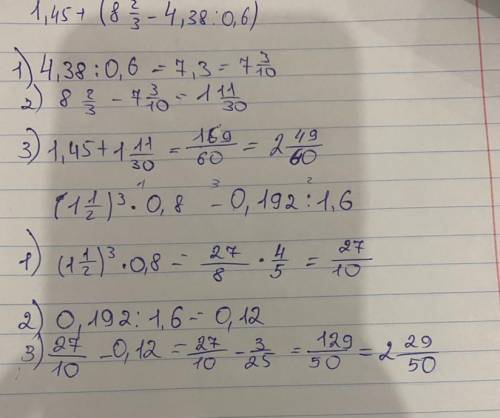 1,45 + (8 2/3 - 4,38 : 0,6)
1) 4,38 : 0,6 = 7,3 = 7 3/10
2) 8 2/3 - 7 3/10 = 1 11/30
3) 1,45 + 1 11/30 = 169/60 = 2 49/60
(1 1/2)³ ·¹ 0,8 -³ 0,192 :² 1,6
1) (1 1/2)³ · 0,8 = 27/8 · 4/5 = 27/10
2) 0,192 : 1,6 = 0,12
3) 27/10 - 0,12 = 27/10 - 3/25 = 129/50 = 2 29/50